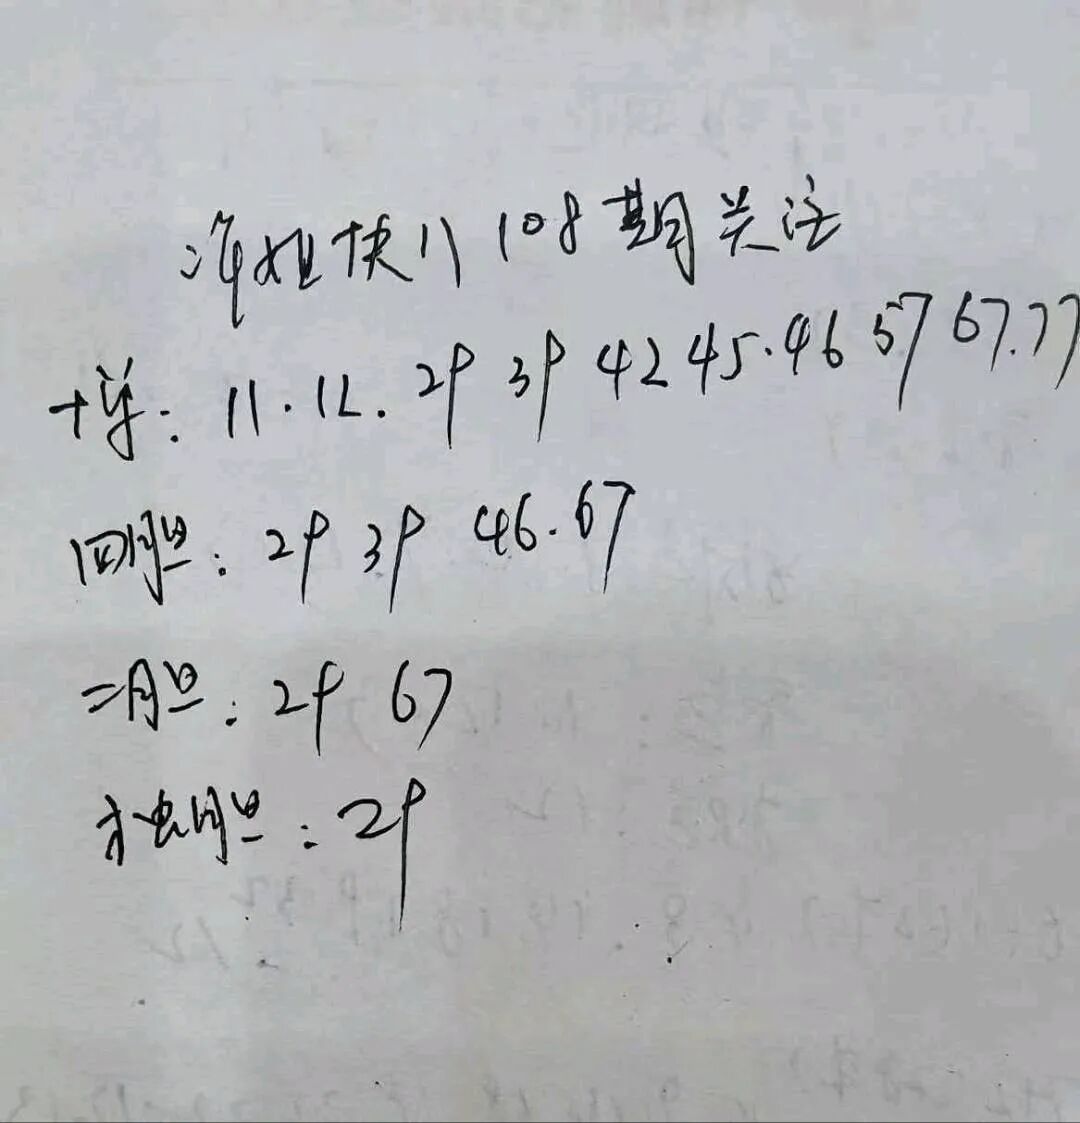 海姐快八108期关注
十単: 11.12. 29 39 42 45.46 57 67.77
四胆: 29 39 46.67
二胆: 29 67
独胆: 29